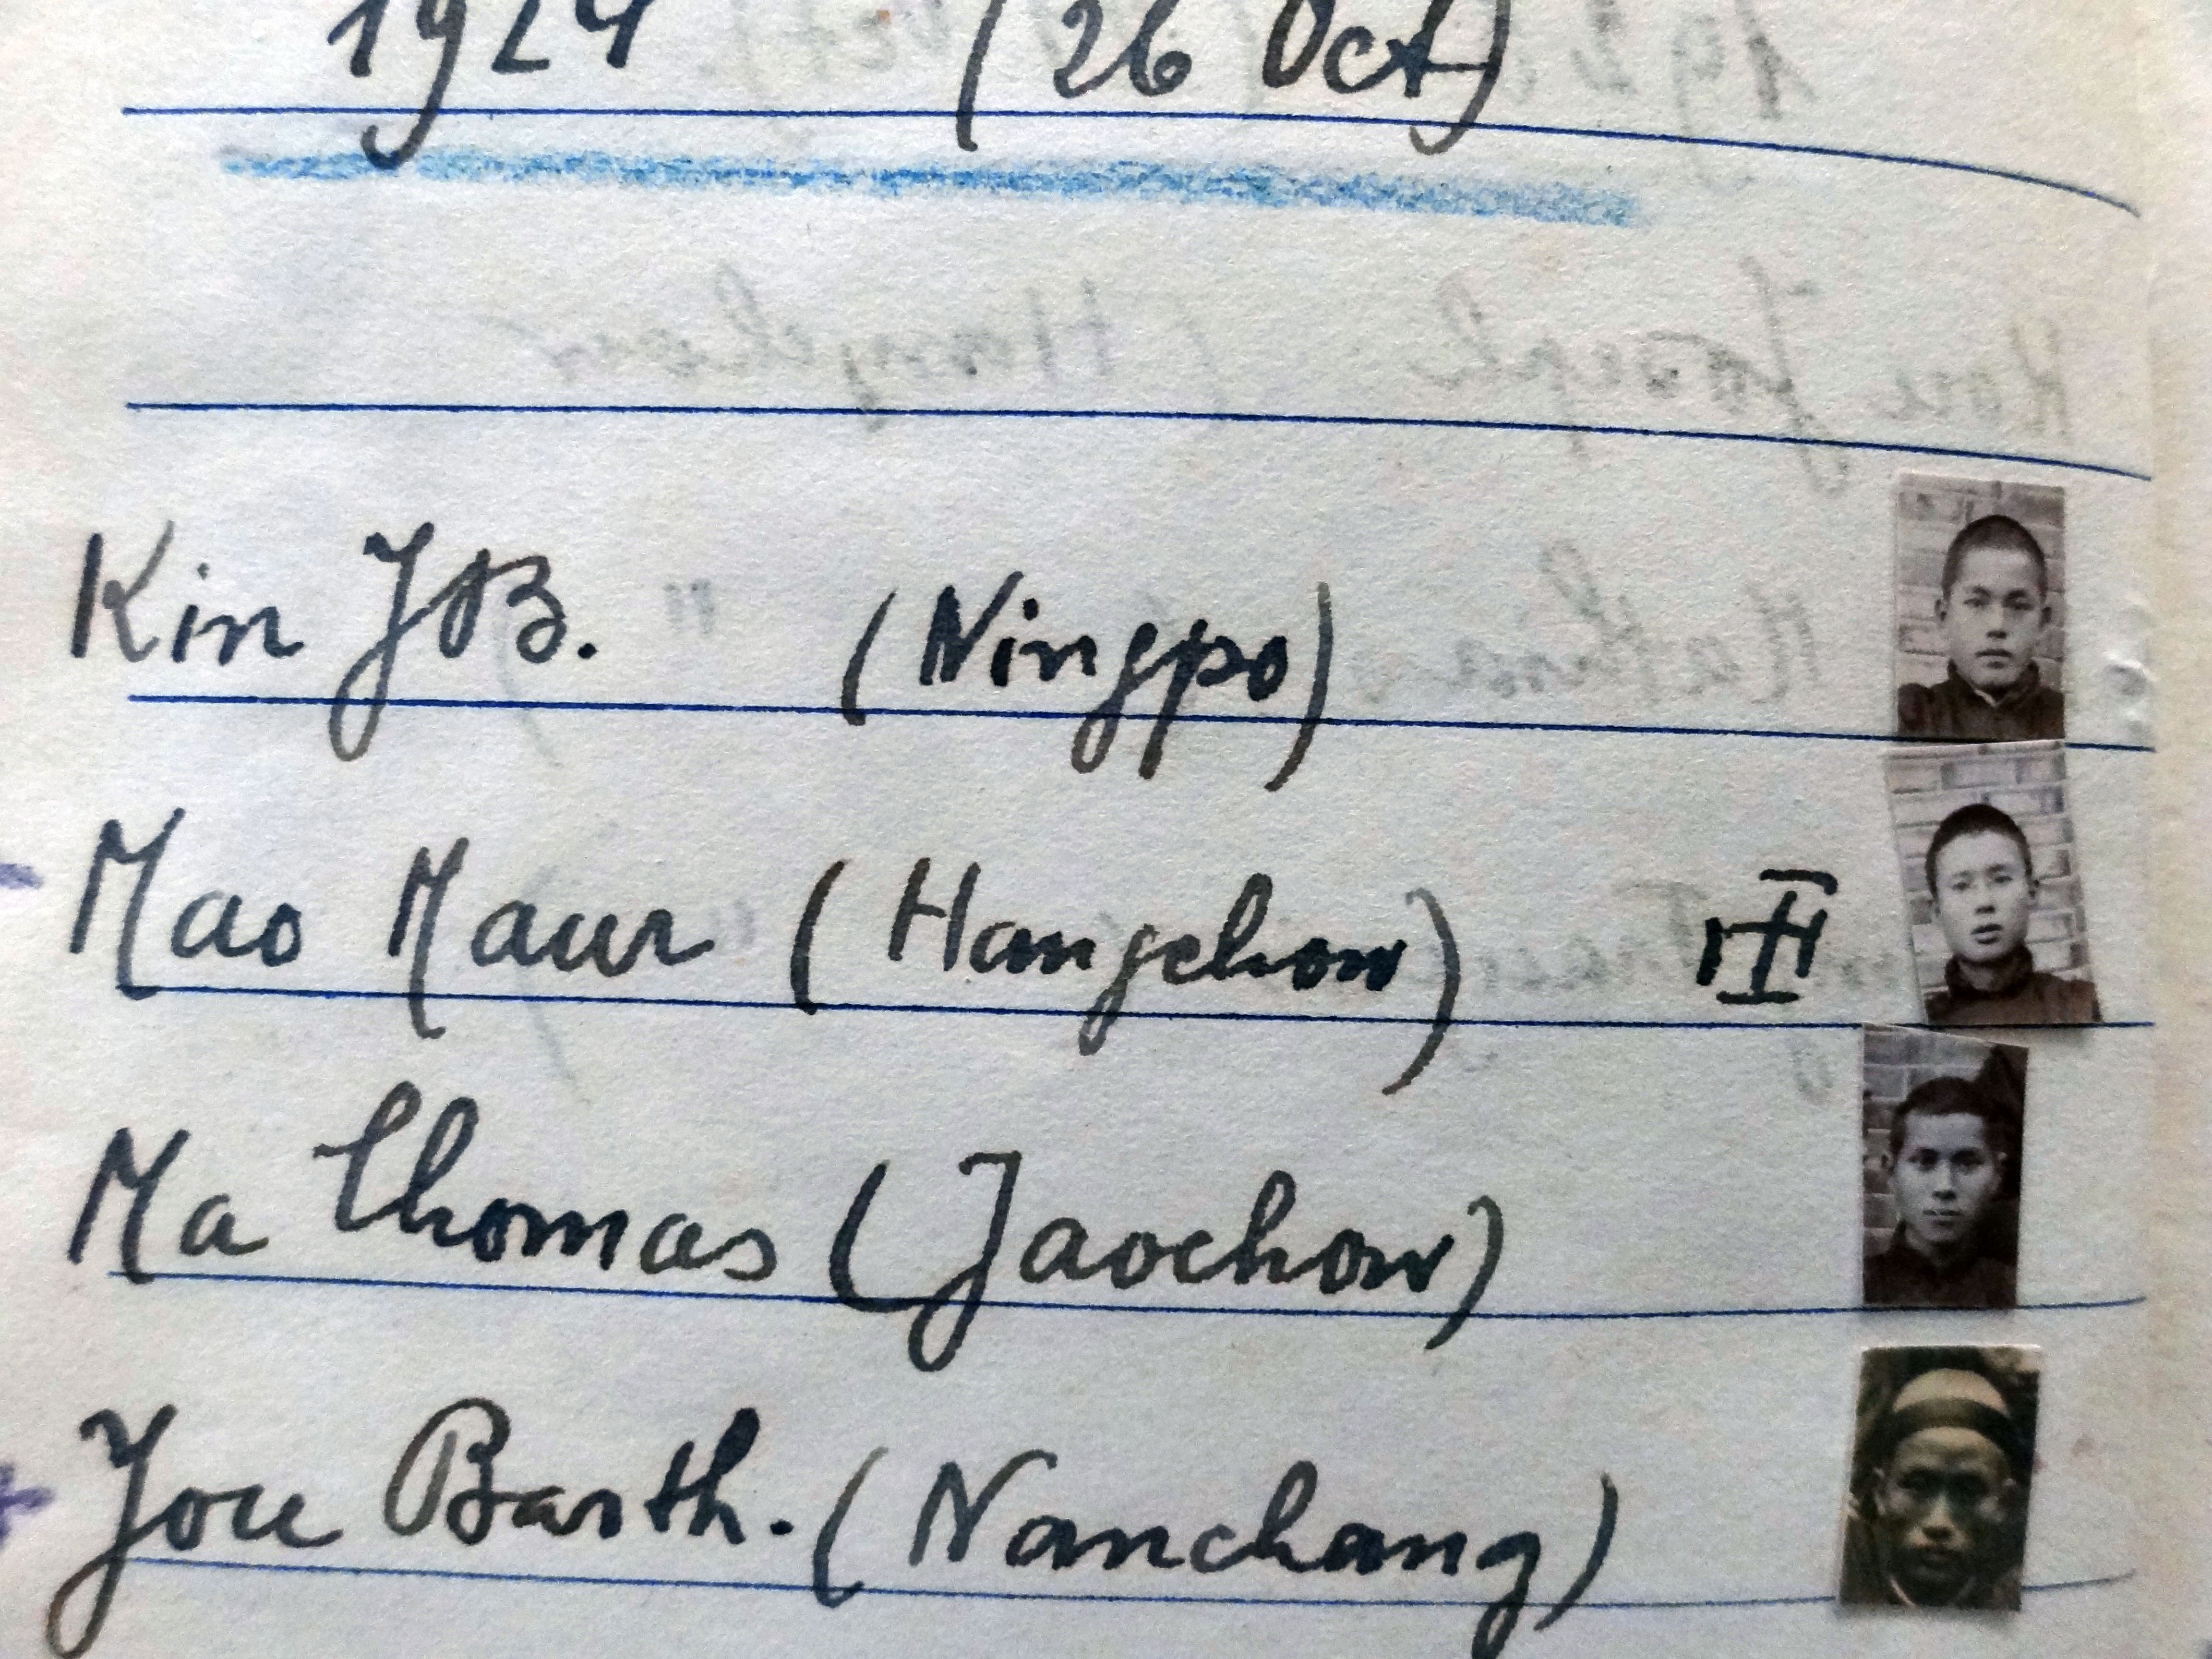 1924 (26 Oct)
Kin JB. (Ningpo)
Mao Maur (Hangchow)
Ma Thomas (Jaochow)
You Barth. (Nanchang)